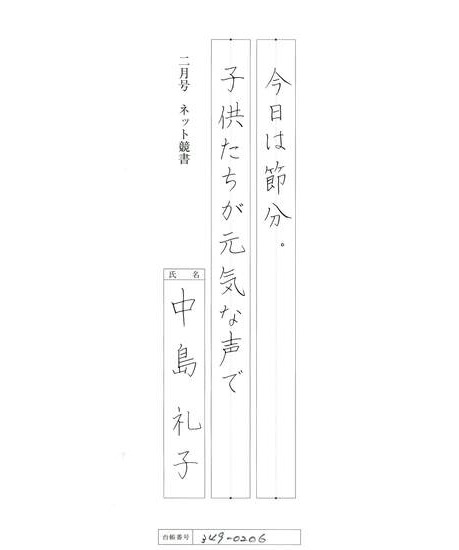 今日は節分。
子供たちが元気な声で
二月号 ネット競書
氏名
中島礼子
台帳番号 349-0206